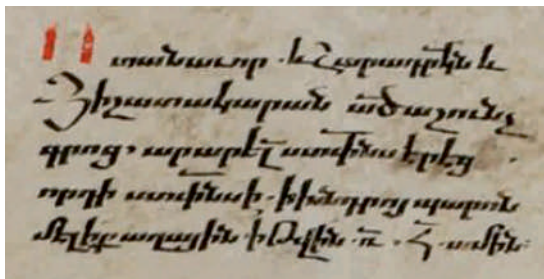 Ոտանաւոր. և Շարագրէն և
Յիշատակարան ած՟աշունչ
գրոց, արարել ստեփ՟նս երէց.
որդի ստեփ՟նսի. ի խնդրոյ պարոն
մելեքաղային. ի Թվին. ռ. Հ. ամին: